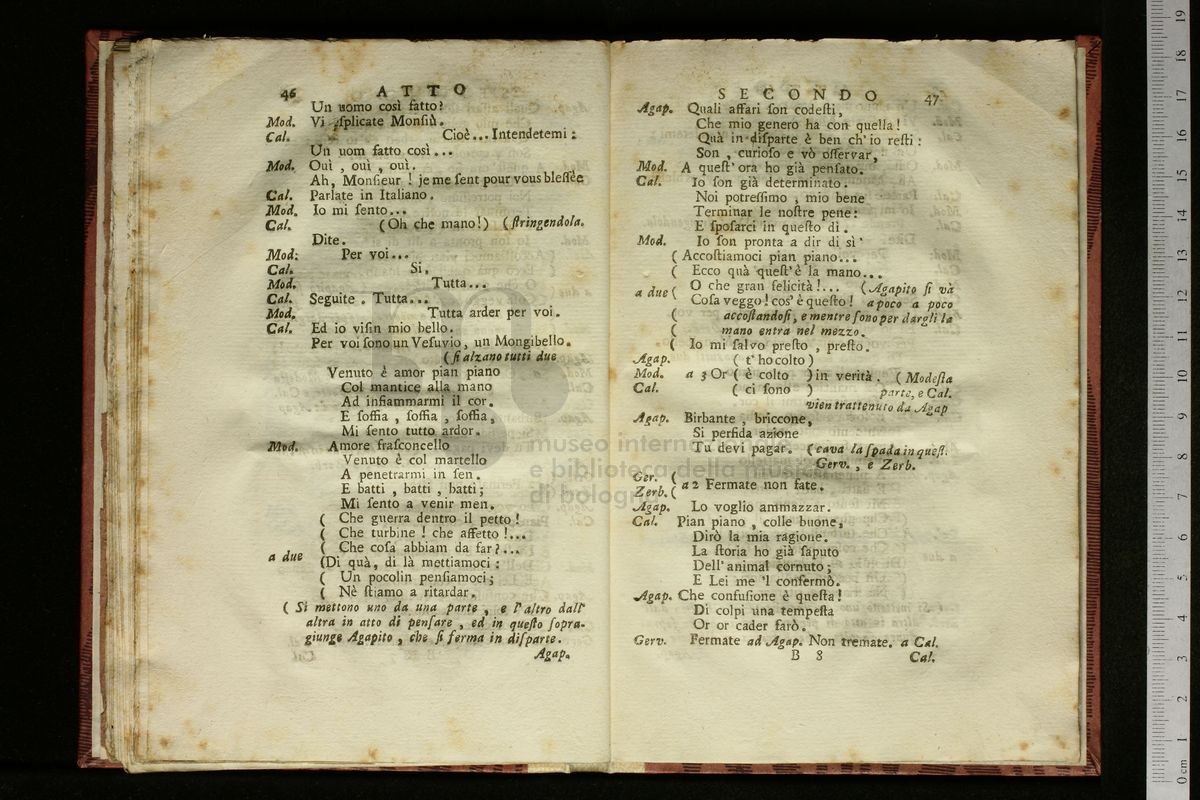 46 ATTO
Un uomo così fatto?
Mod. Vi ſplicate Monſiù.
Cal. Cioè... Intendetemi:
Un uom fatto così...
Mod. Ouì , ouì , ouì.
Ah, Monſieur ! je me ſent pour vous bleſſèe
Cal. Parlate in Italiano.
Mod. Io mi ſento...
Cal. (Oh che mano!) (ſtringendola.
Dite.
Mod: Per voi...
Cal. Sì,
Mod. Tutta...
Cal. Seguite . Tutta...
Mod. Tutta arder per voi.
Cal. Ed io viſin mio bello.
Per voi ſono un Veſuvio, un Mongibello.
(ſi alzano tutti due
Venuto è amor pian piano
Col mantice alla mano
Ad infiammarmi il cor.
E ſoffia , ſoffia , ſoffia,
Mi ſento tutto ardor.
Mod. Amore fraſconcello
Venuto è col martello
A penetrarmi in ſen.
E batti , batti , batti;
Mi ſento a venir men.
( Che guerra dentro il petto !
( Che turbine ! che affetto !...
( Che coſa abbiam da far?...
a due (Di quà, di là mettiamoci :
( Un pocolin penſiamoci;
( Nè ſtiamo a ritardar.
( Si mettono uno da una parte , e l'altro dall'
altra in atto di penſare , ed in queſto ſopra-
giunge Agapito , che ſi ferma in diſparte.
Agap.
SECONDO 47
Agap. Quali affari ſon codeſti,
Che mio genero ha con quella!
Quà in diſparte è ben ch'io reſti :
Son , curioſo e vò oſſervar,
Mod. A queſt'ora ho già penſato.
Cal. Io ſon già determinato.
Noi potreſſimo , mio bene
Terminar le noſtre pene:
E ſpoſarci in queſto dì.
Mod. Io ſon pronta a dir di sì'
( Accoſtiamoci pian piano...
( Ecco quà queſt'è la mano...
a due ( O che gran felicità!... (Agapito ſi và
Coſa veggo! cos'è queſto! a poco a poco
( accoſtandoſi, e mentre ſono per dargli la
( mano entra nel mezzo.
( Io mi ſalvo preſto , preſto.
Agap. ( t'ho colto)
Mod. a 3 Or ( è colto )in verità. (Modeſta
Cal. ( ci ſono ) parte, e Cal.
vien trattenuto da Agap
Agap. Birbante , briccone,
Si perfida azione
Tu devi pagar. (cava la ſpada in quèſt.
Gerv. , e Zerb.
Ger. (
a 2 Fermate non fate.
Zerb. (
Agap. Lo voglio ammazzar.
Cal. Pian piano , colle buone,
Dirò la mia ragione.
La ſtoria ho già ſaputo
Dell'animal cornuto;
E Lei me 'l confermò.
Agap. Che confuſione è queſta!
Di colpi una tempeſta
Or or cader farò.
Gerv. Fermate ad Agap. Non tremate. a Cal.
B 8 Cal.
museo internazionale
e biblioteca della musica
di bologna
0 cm 1 2 3 4 5 6 7 8 9 10 11 12 13 14 15 16 17 18 19